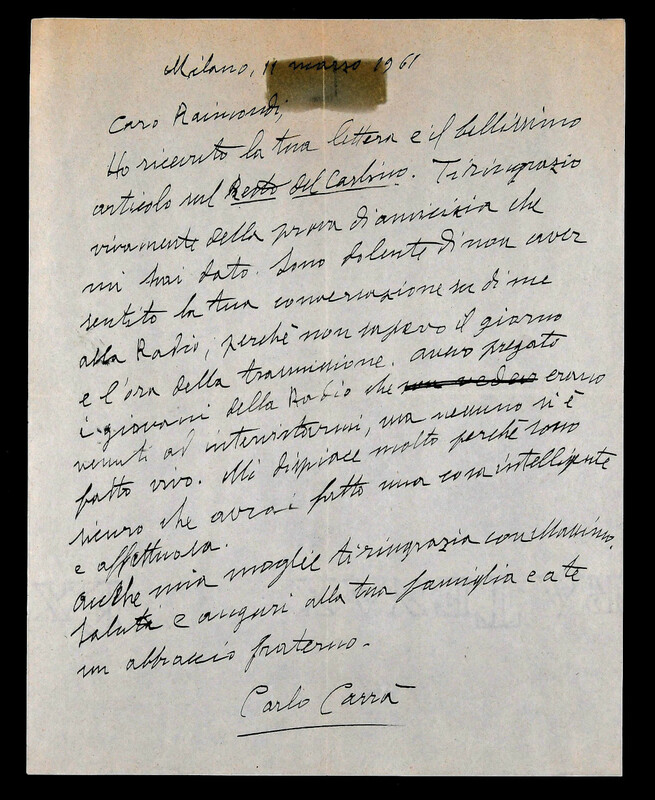 Milano, 11 marzo 1961
Caro Raimondi,
Ho ricevuto la tua lettera e il bellissimo
articolo sul Resto del Carlino. Ti ringrazio
vivamente della prova di amicizia che
mi hai dato. Sono dolente di non aver
sentito la tua conversazione su di me
alla Radio, perché non sapevo il giorno
e l'ora della trasmissione. avevo pregato
i giovani della Radio che non vedevo erano
venuti ad intervistarmi, ma nessuno si è
fatto vivo. Mi dispiace molto perché sono
sicuro che avrai fatto una cosa intelligente
e affettuosa.
anche mia moglie ti ringrazia con Massimo.
Saluti e auguri alla tua famiglia e a te
un abbraccio fraterno.
Carlo Carrà